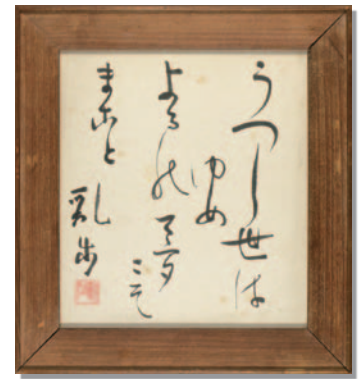 うつし世は
ゆめ
よるの夢
こそ
まこと
乱歩